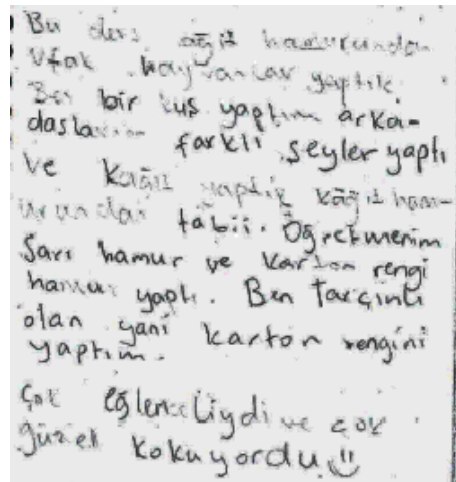 Bu ders kağıt hamurundan
Ufak hayvanlar yaptık
Ben bir kuş yaptım arka-
daslarım farklı şeyler yaptı
ve Kağıt yaptık kağıt ham-
urundan tabii. Öğretmenim
Sarı hamur ve karton rengi
hamur yaptı. Ben Tarçınlı
olan yani karton rengini
yaptım.
Çok eğlenceliydi ve çok
güzel kokuyordu ü